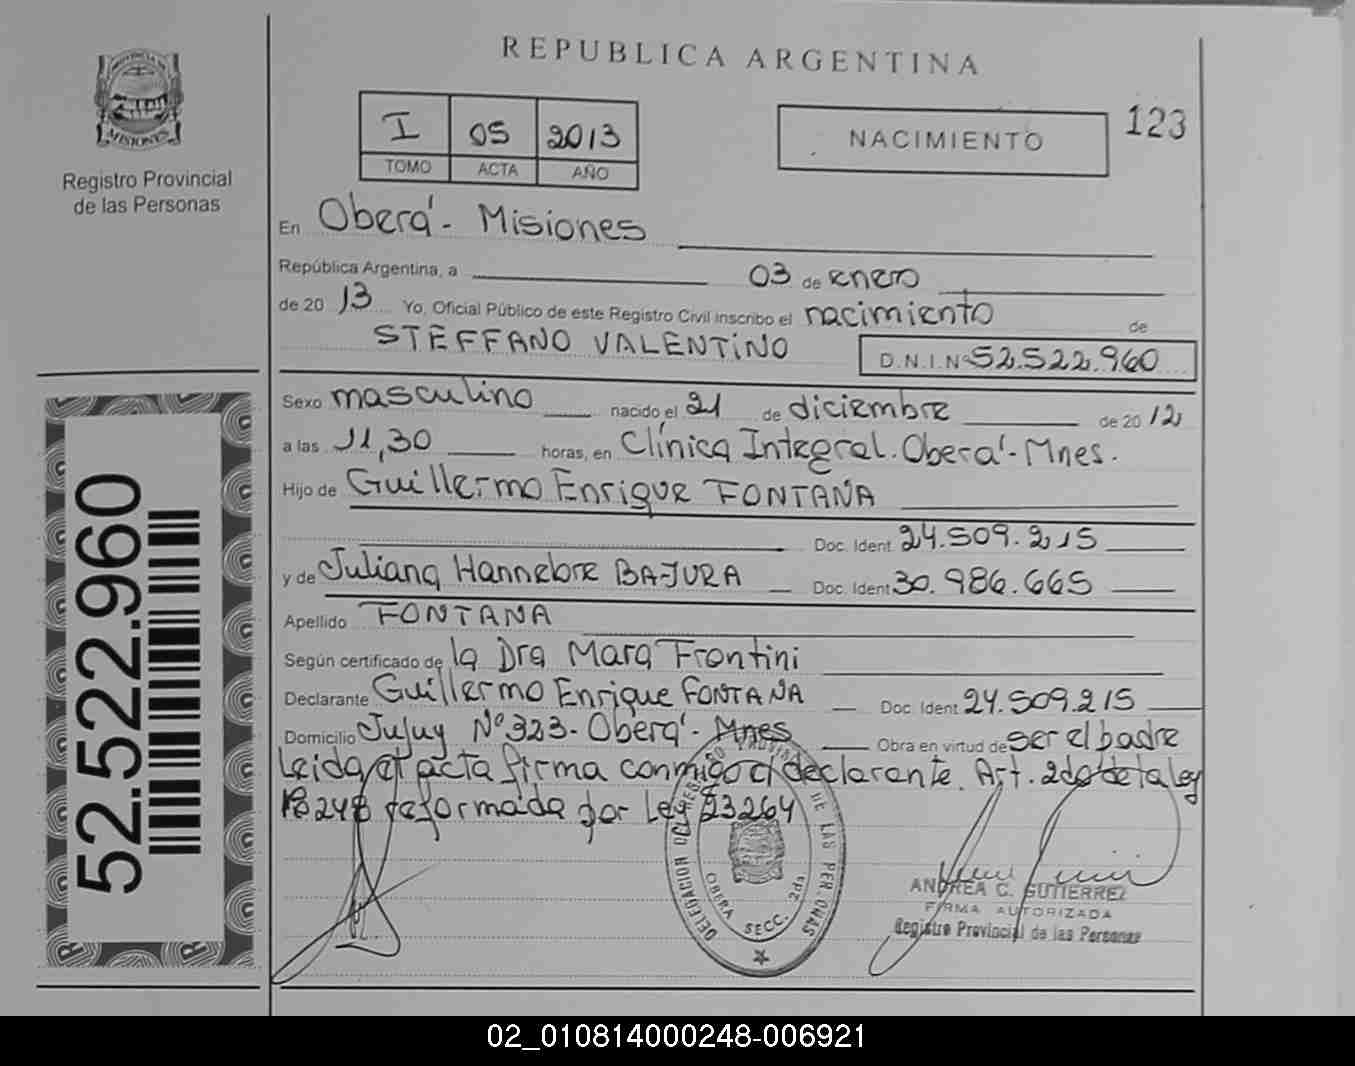 REPUBLICA ARGENTINA
PROVINCIA DE
MISIONES
Registro Provincial
de las Personas
I 05 2013
TOMO ACTA AÑO
NACIMIENTO
123
En Oberá - Misiones
República Argentina, a 03 de enero
de 2013 Yo, Oficial Público de este Registro Civil inscribo el nacimiento de
STEFFANO VALENTINO D.N.I.Nº 52.522.960
Sexo masculino nacido el 21 de diciembre de 2012
a las 11,30 horas, en Clínica Integral. Oberá - Mnes.
Hijo de Guillermo Enrique FONTANA
Doc. Ident. 24.509.215
y de Juliana Hannebre BAJURA Doc. Ident 30.986.665
Apellido FONTANA
Según certificado de la Dra Mara Frontini
Declarante Guillermo Enrique FONTANA Doc. Ident 24.509.215
Domicilio Jujuy Nº 323 - Oberá - Mnes Obra en virtud de ser el padre
Leida el acta firma conmigo el declarante. Art. 2do de la ley
reformada por Ley 23264
DELEGACION DEL REGISTRO PROVINCIAL DE LAS PERSONAS
OBERA SECC. 2da
ANDREA C. GUTIERREZ
FIRMA AUTORIZADA
Registro Provincial de las Personas
52.522.960
02_010814000248-006921